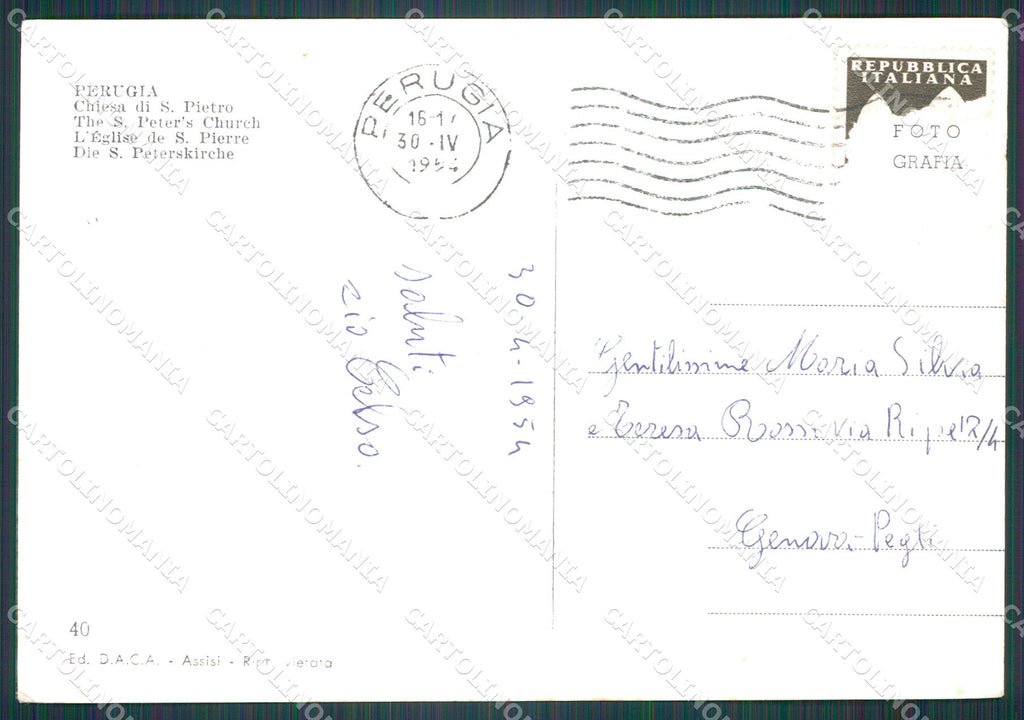 PERUGIA
Chiesa di S. Pietro
The S. Peter's Church
L'Église de S. Pierre
Die S. Peterskirche
PERUGIA
30 · IV
REPUBBLICA
ITALIANA
FOTO
GRAFIA
30-4-1954
saluti
zio Celso.
Gentilissime Maria Silvia
e Teresa Rossi via Ripe 12/4
Genova-Pegli
40
Ed. D.A.C.A. - Assisi -
CARTOLINOMANIA